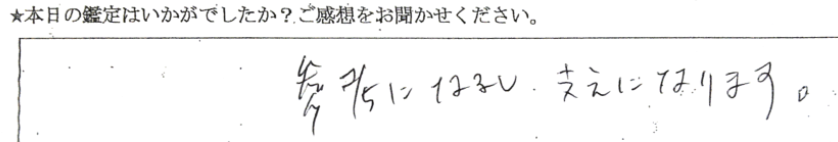 ★本日の鑑定はいかがでしたか？ご感想をお聞かせください。
参考になるし、支えになります。